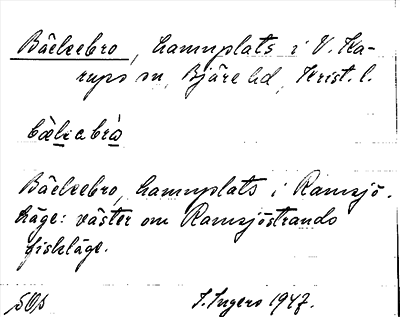 Bälcebro, hamnplats i V. Ka-
rups sn, Bjäre hd, Krist. l.
bälcabrà
Bälcebro, hamnplats i Ramsjö.
läge: väster om Ramsjöstrands
fiskläge.
S. Ingers 1947.